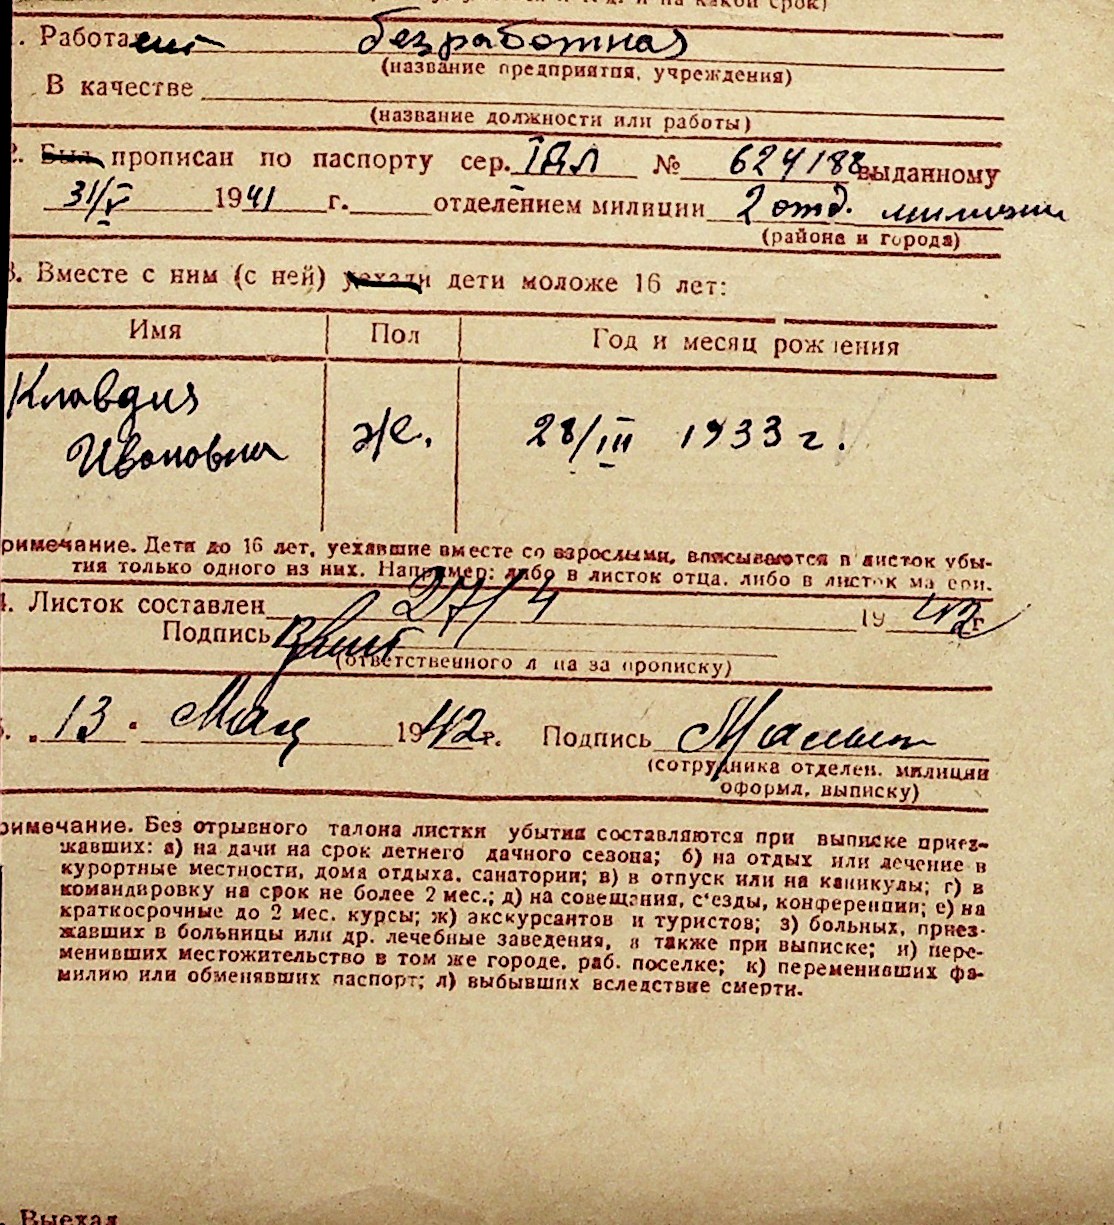 и на какой срок)
. Работает безработная
(название предприятия, учреждения)
В качестве
(название должности или работы)
2. Был прописан по паспорту сер. № 624188 выданному
31/V 1941 г. отделением милиции 2 отд. милиции
(района и города)
3. Вместе с ним (с ней) уехали дети моложе 16 лет:
Имя Пол Год и месяц рождения
Клавдия
Ивановна Ж. 28/III 1933 г.
римечание. Дети до 16 лет, уехавшие вместе со взрослыми, вписываются в листок убы-
тия только одного из них. Например: либо в листок отца, либо в листок ма ери.
4. Листок составлен 27/4 1942 г
Подпись
(ответственного л ца за прописку)
. „13" Мая 1942 г. Подпись
(сотрудника отделен. милиции
оформл. выписку)
римечание. Без отрывного талона листки убытия составляются при выписке приез-
жавших: а) на дачи на срок летнего дачного сезона; б) на отдых или лечение в
курортные местности, дома отдыха, санатории; в) в отпуск или на каникулы; г) в
командировку на срок не более 2 мес.; д) на совещания, с'езды, конференции; е) на
краткосрочные до 2 мес. курсы; ж) экскурсантов и туристов; з) больных, приез-
жавших в больницы или др. лечебные заведения, а также при выписке; и) пере-
менивших местожительство в том же городе, раб. поселке; к) переменивших фа-
милию или обменявших паспорт; л) выбывших вследствие смерти.
. Выехал